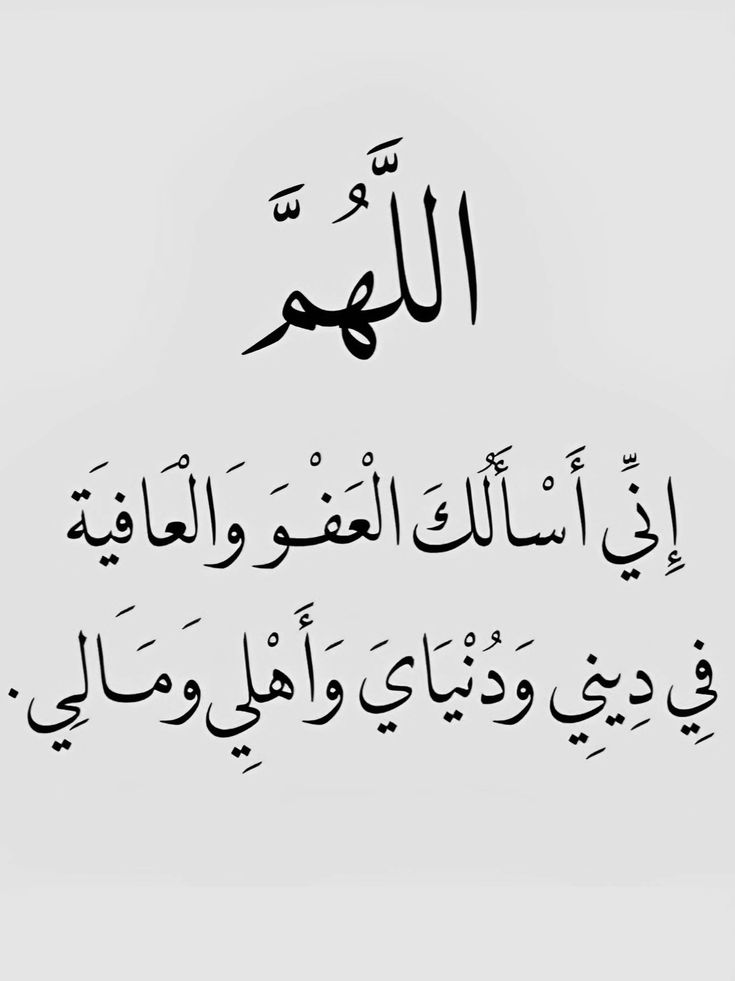 اللَّهُمَّ
إِنِّي أَسْأَلُكَ الْعَفْوَ وَالْعَافِيَةَ
فِي دِينِي وَدُنْيَايَ وَأَهْلِي وَمَالِي.